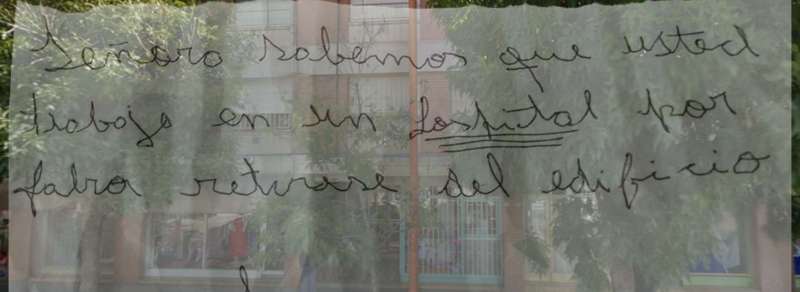 Señora sabemos que usted
trabaja en un hospital por
fabra retirese del edificio